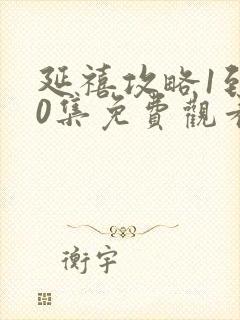 延禧攻略1到
0集免費觀看
衡宇